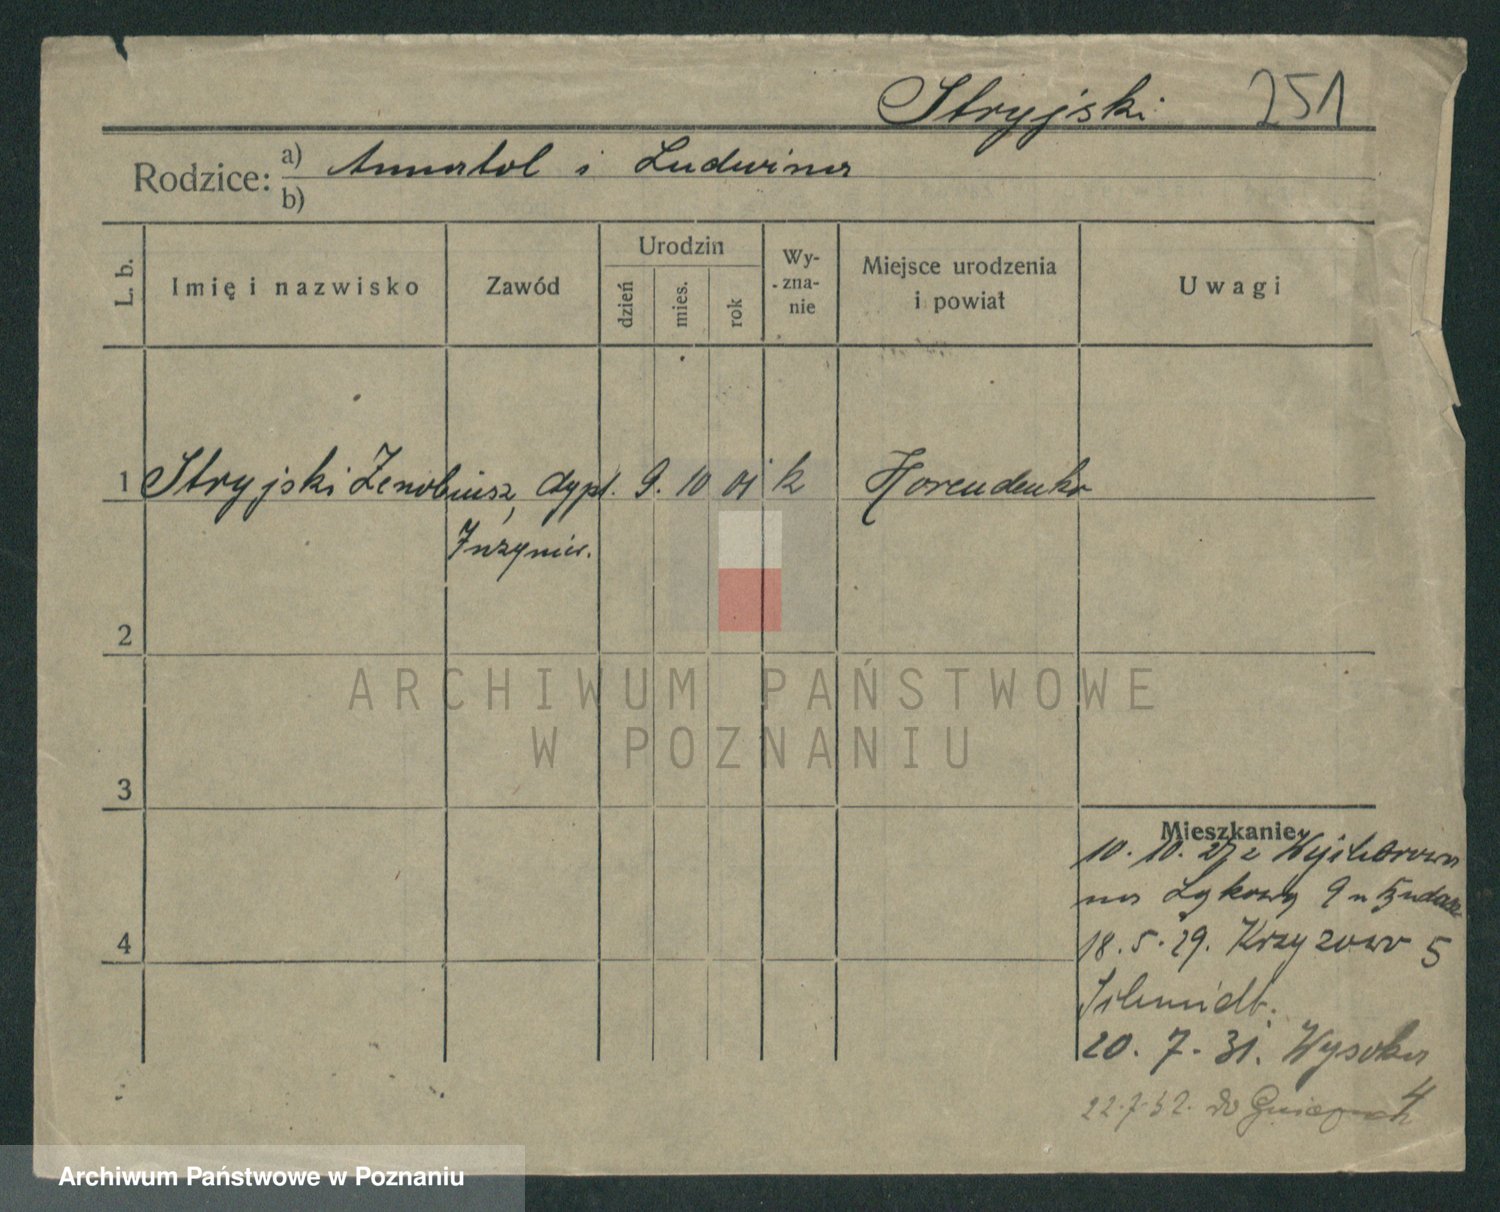 Stryjski 251
Rodzice: a) Annatol i Ludwina
b)
L. b.
Imię i nazwisko
Zawód
Urodzin
dzień
mies.
rok
Wy-
zna-
nie
Miejsce urodzenia
i powiat
Uwagi
1 Stryjski Zenobiusz, dypl. 9. 10 01 k Horendenka
Inżynier.
2
3
4
ARCHIWUM PAŃSTWOWE
W POZNANIU
Mieszkanie
10. 10. 27 z Wejherowa
na Łąkową 9 u
18. 5. 29. Krzyżowa 5
Schmidt.
20. 7. 31. Wysoka
4
22.7.32. do
Archiwum Państwowe w Poznaniu